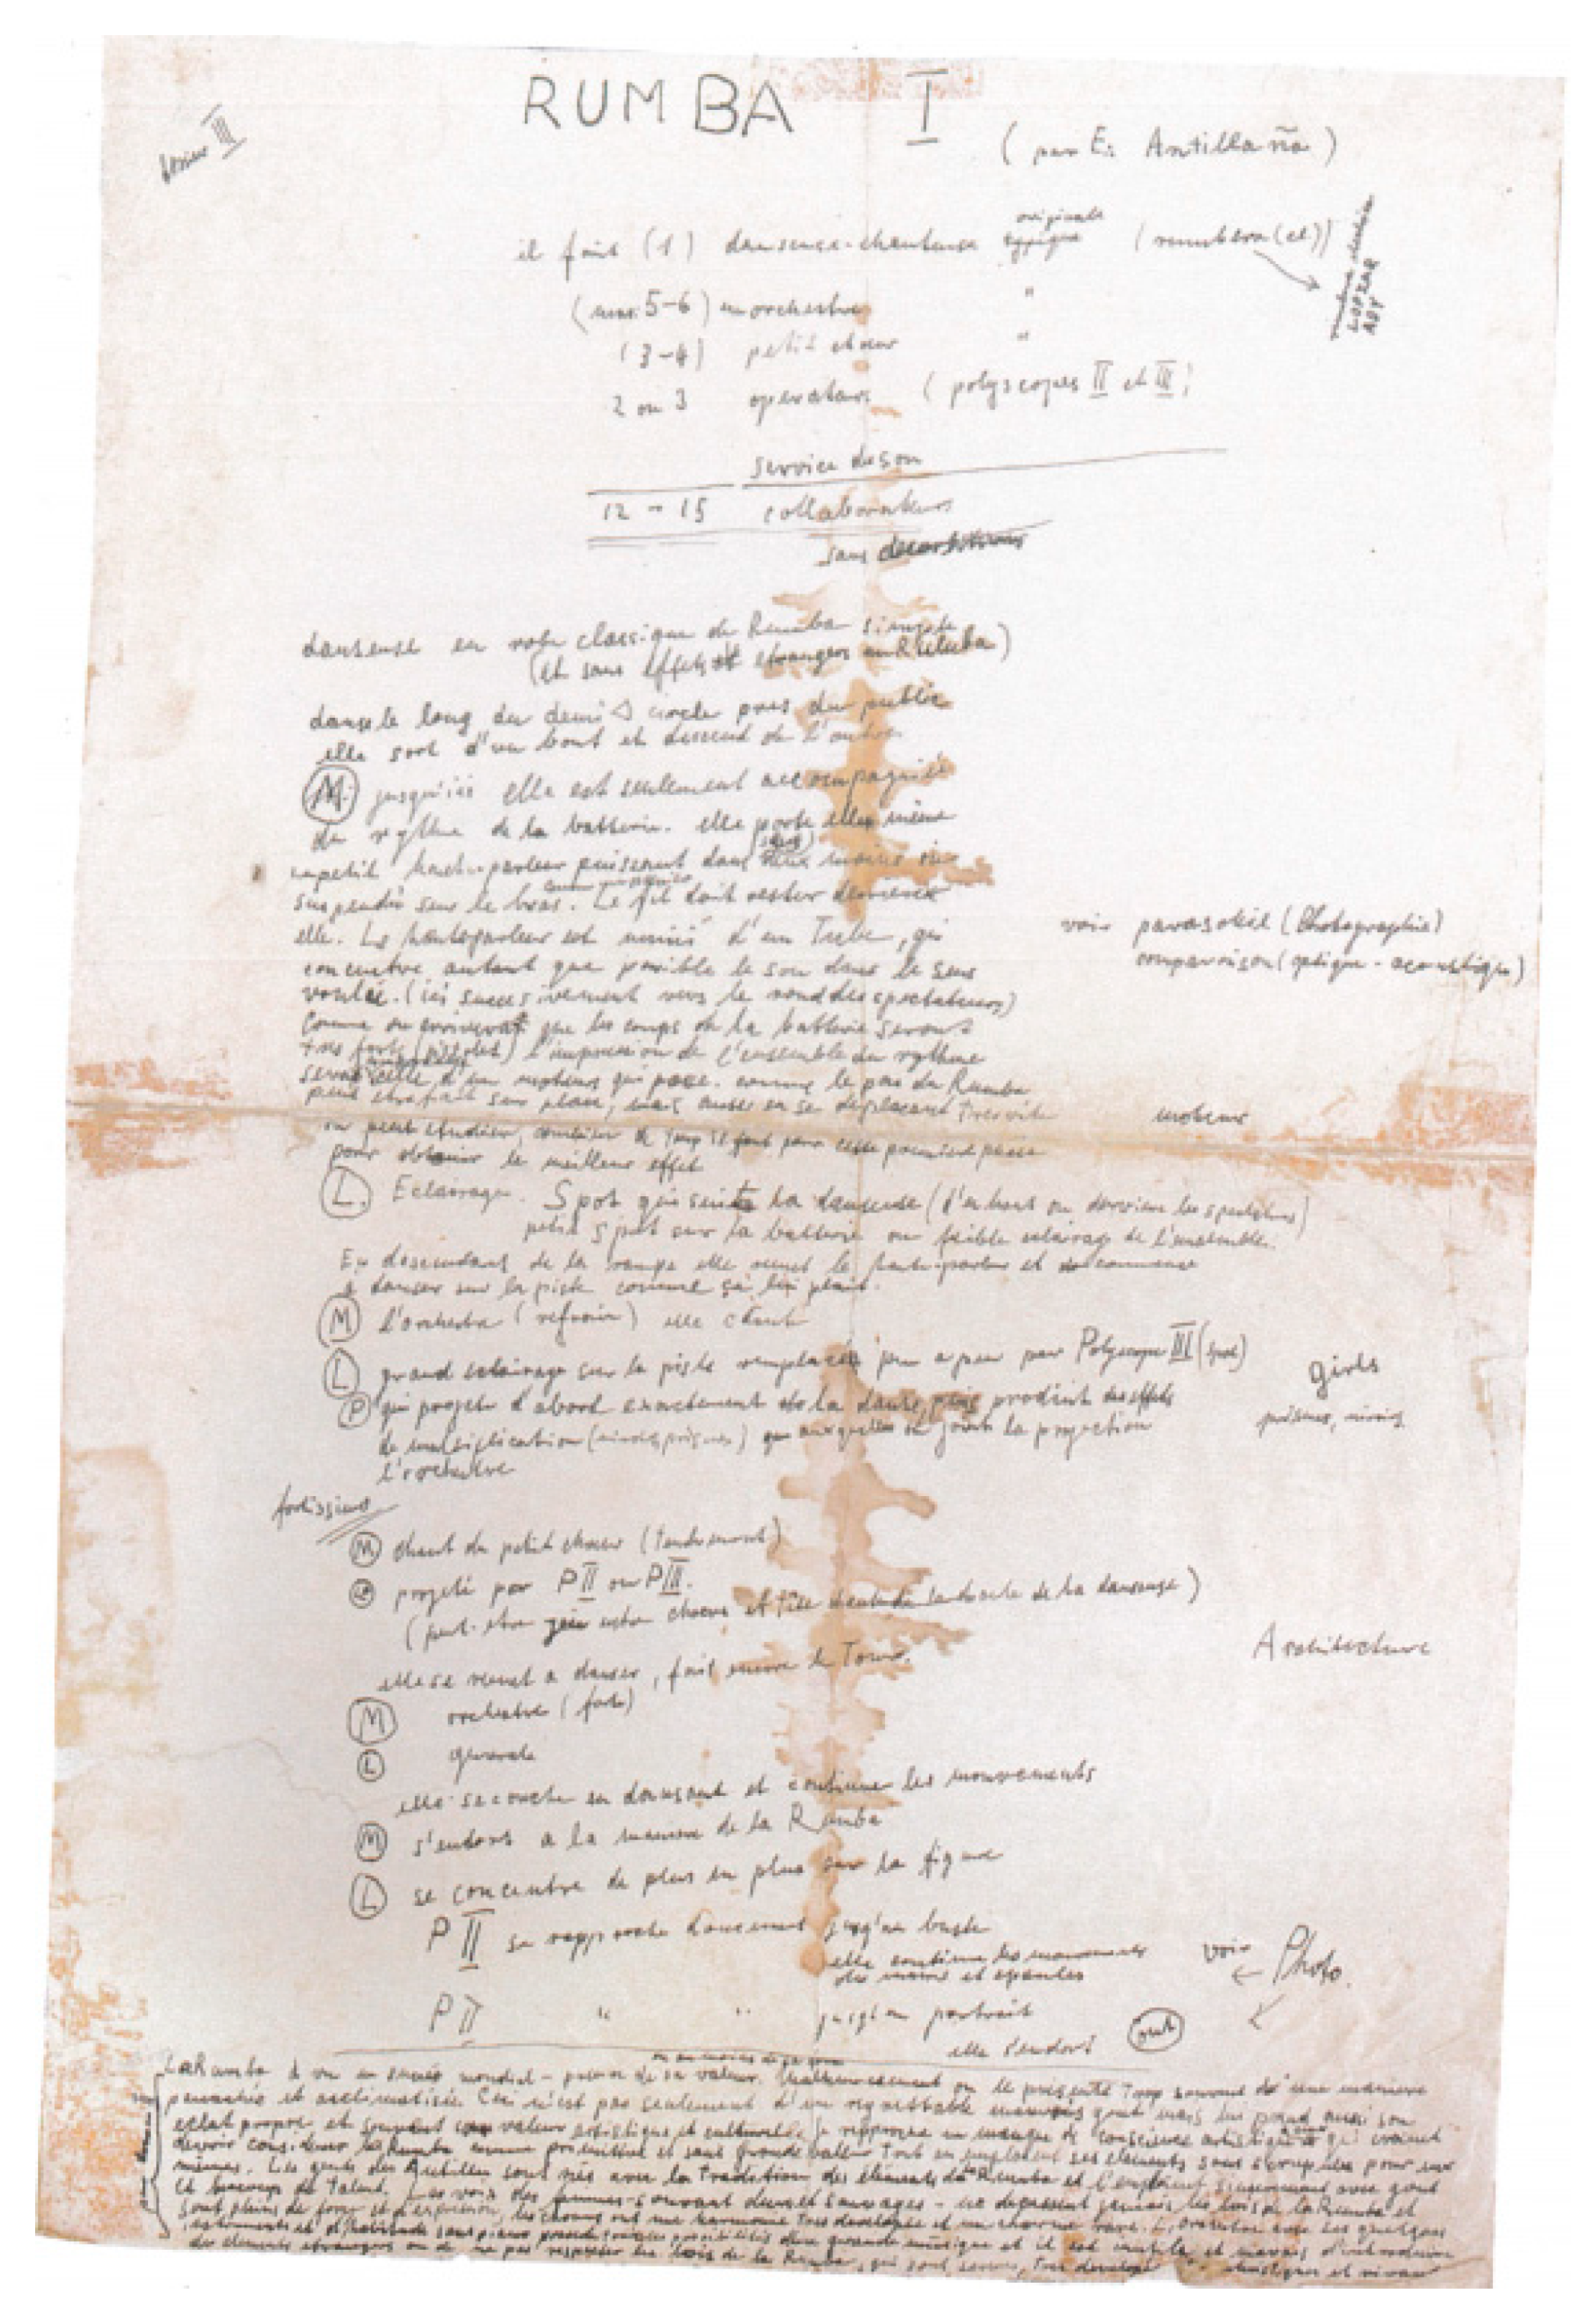 RUMBA I
III
(par Ex: Antillaña)
il faut (1) danseuse-chanteuse originale typique (rumbera(ee))
(max: 5-6) un orchestre "
(3-4) petit choeur "
2 ou 3 operateurs (polyscopes II et III)
service du son
12 - 15 collaborateurs
sans
danseuse en robe classique de Rumba simple
(et sans effets etrangers au Rumba)
danse le long du demi cercle pres du public
elle sort d'un bout et descend de l'autre.
M. jusqu'ici elle est seulement accompagnée
du rythme de la batterie. elle porte elle même
un petit haut-parleur puissant dans mains
suspendu sur le bras. Le fil doit rester derriere
elle. Le hautparleur est muni d'un Tube, qui
concentre autant que posible le son dans le sens
voulu. (ici succesivement vers le rond des spectateurs)
Comme on que les coups de la batterie seront
tres forts (pistolet) l'impression de l'ensemble du rythme
sera celle d'un moteur qui passe. comme le pas du Rumba
peut etre fait sur place, mais aussi en se deplaçant tres vite
on peut etudier, combien de temp il faut pour cette premiere partie
pour obtenir le meilleur effet
voir parasoleil (Photographie)
comparaison (optique - acoustique)
moteur
L. Eclairage. Spot qui suit la danseuse (d'en haut ou derriere les spectateurs)
petit spot sur la batterie ou faible eclairage de l'ensemble.
En descendant de la rampe elle remet le haut-parleur et commence
a danser sur la piste comme ça lui plait.
M l'orchestre (refrain) elle chante
L grand eclairage sur la piste remplacée peu a peu par Polyscope III (spot)
P qui projete d'abord exactement la danse, puis produit des effets
de multiplication on joint la projection
l'orchestre
girls
prismes, miroirs
fortissimo
M chant du petit choeur (tendrement)
projeté par PII ou PIII.
(peut-etre entre choeur et tête de la danseuse)
Architecture
elle se remet a danser, fait encore le Tour.
M orchestre (forte)
L generale
elle se couche en dansant et continue les mouvements
M s'endort a la maniere de la Rumba
L se concentre de plus en plus sur la figure
P II se rapproche doucement jusqu'au buste
elle continue les mouvements
des mains et epaules
voir ← Photo.
P II " " jusqu'au portrait
elle s'endort out
La Rumba à eu un succés mondial - preuve de sa valeur. Malheureusement on le présente Trop souvent d'une maniere
et acclimatisée. Ceci n'est pas seulement d'un regrettable mauvais gout mais lui prend aussi son
eclat propre et souvent son valeur artistique et culturelle. je rapproche un manque de conscience artistique qui
devoir considerer la Rumba comme primitive et sans grande valeur tout en employant ses elements sans scrupules pour eux
mêmes. Les gents des Antilles sont nés avec la tradition des élements de Rumba et l'emploient avec gout
et beaucoup de talent. Les voix des femmes - souvent dures et sauvages - ne depassent jamais les lois de la Rumba et
sont pleins de force et d'expression, les choeurs ont une harmonie tres developée et un charme rare. L'orchestre avec les quelques
instruments et d'habitude sans piano possede toutes les possibilités d'une grande musique et il est inutile et mauvais d'introduire
des elements etrangers ou de ne pas respecter les lois de la Rumba, qui sont severes, tres developé